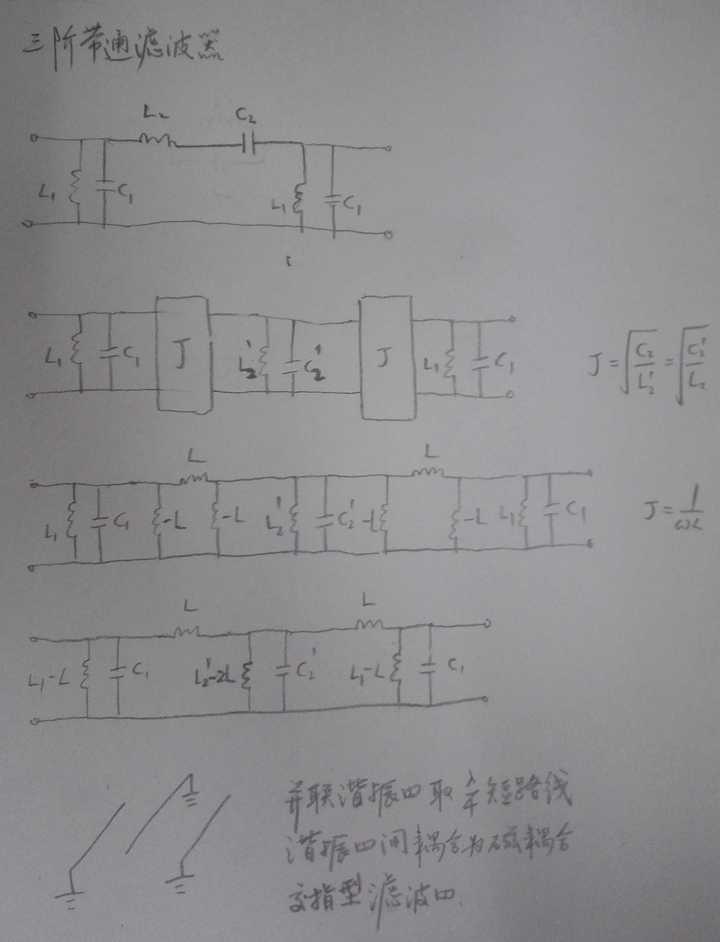 三阶带通滤波器
L₂ C₂
L₁ C₁ L₁ C₁
L₁ C₁ J L₂' C₂' J L₁ C₁ J=√(C₂/L₂')=√(C₂'/L₂)
L L
L₁ C₁ -L -L L₂' C₂' -L -L L₁ C₁ J=1/ωL
L L
L₁-L C₁ L₂'-2L C₂' L₁-L C₁
并联谐振四取λ/4短路线
谐振四间耦合为磁耦合
交指型滤波四